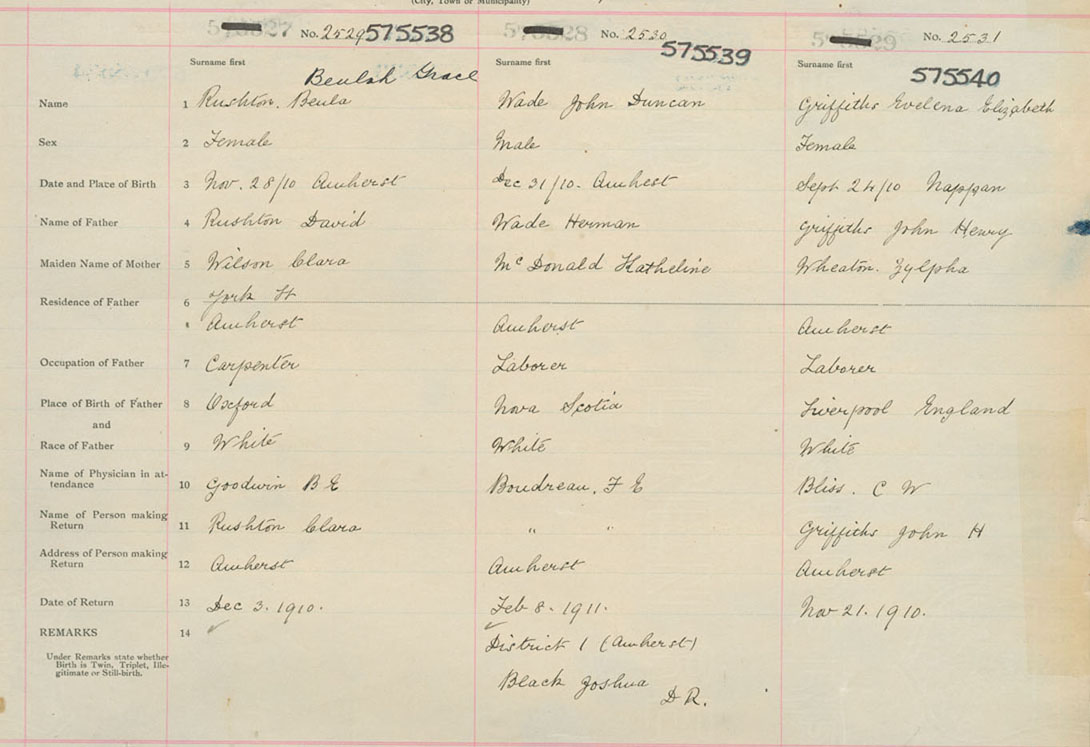 (City, Town or Municipality)
No. 2529 575538 No. 2530 575539 No. 2531 575540
Surname first Surname first Surname first
Beulah Grace
Name 1 Rushton, Beula Wade John Duncan Griffiths Evelena Elizabeth
Sex 2 Female Male Female
Date and Place of Birth 3 Nov. 28/10 Amherst Dec 31/10. Amhest Sept 24/10 Nappan
Name of Father 4 Rushton David Wade Herman Griffiths John Henry
Maiden Name of Mother 5 Wilson Clara McDonald Katheline Wheaton. Zylpha
Residence of Father 6 York St
Amherst Amherst Amherst
Occupation of Father 7 Carpenter Laborer Laborer
Place of Birth of Father 8 Oxford Nova Scotia Liverpool England
and
Race of Father 9 White White White
Name of Physician in at-
tendance 10 Goodwin B E Boudreau. F E Bliss. C W
Name of Person making
Return 11 Rushton Clara " " Griffiths John H
Address of Person making
Return 12 Amherst Amherst Amherst
Date of Return 13 Dec 3. 1910. Feb 8. 1911. Nov 21. 1910.
REMARKS 14
District 1 (Amherst)
Under Remarks state whether
Birth is Twin, Triplet, Ille-
gitimate or Still-birth.
Black Joshua
D.R.